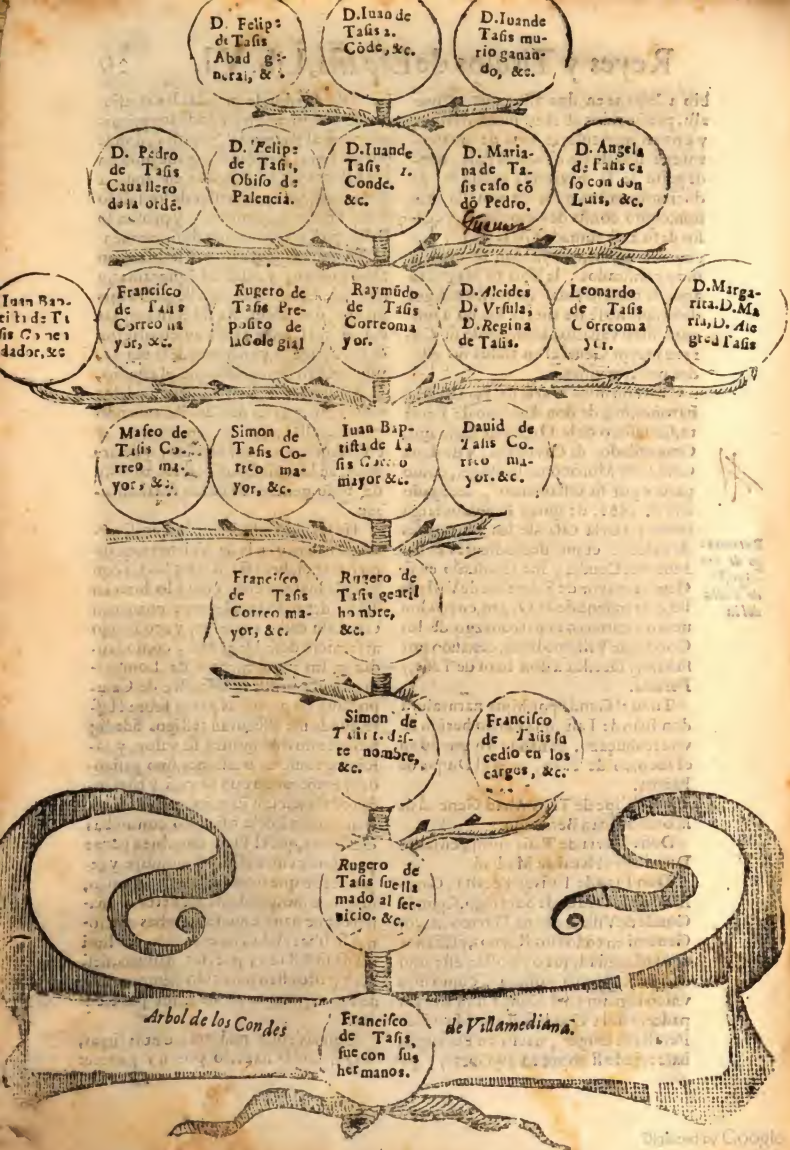 D. Felipe
de Tasis
Abad ge-
neral, &
D.Iuan de
Tasis 2.
Cōde, &c.
D.Iuande
Tasis mu-
rio ganan-
do, &c.
D. Pedro
de Tasis
Cauallero
dela ordē.
D. Felipe
de Tasis,
Obiso de
Palencia.
D.Iuande
Tasis 1.
Conde.
&c.
D. Maria-
na de Ta-
sis caso cō
dō Pedro.
D. Angela
de Tasis ca
so con don
Luis, &c.
Iuan Bap-
tista de Ta
sis Comen
dador, &c
Francisco
de Tasis
Correo ma
yor, &c.
Rugero de
Tasis Pre-
posito de
laColegial
Raymūdo
de Tasis
Correoma
yor.
D. Alcides
D. Vrsula,
D. Regina
de Tasis.
Leonardo
de Tasis
Correoma
yor.
D.Marga-
rita.D.Ma
ria,D. Ale
gred Tasis
Mafeo de
Tasis Co-
rreo ma-
yor, &c.
Simon de
Tasis Co-
rreo ma-
yor, &c.
Iuan Bap-
tista de Ta
sis Correo
mayor &c.
Dauid de
Tasis Co-
rreo ma-
yor. &c.
Francisco
de Tasis
Correo ma-
yor, &c.
Rugero de
Tasis gentil
hombre,
&c.
Simon de
Tasis 1. des-
te nombre,
&c.
Francisco
de Tasis su
cedio en los
cargos, &c.
Rugero de
Tasis fue lla
mado al ser-
uicio. &c.
Arbol de los Condes
Francisco
de Tasis,
fue con sus
hermanos.
de Villamediana.
Digitized by Google